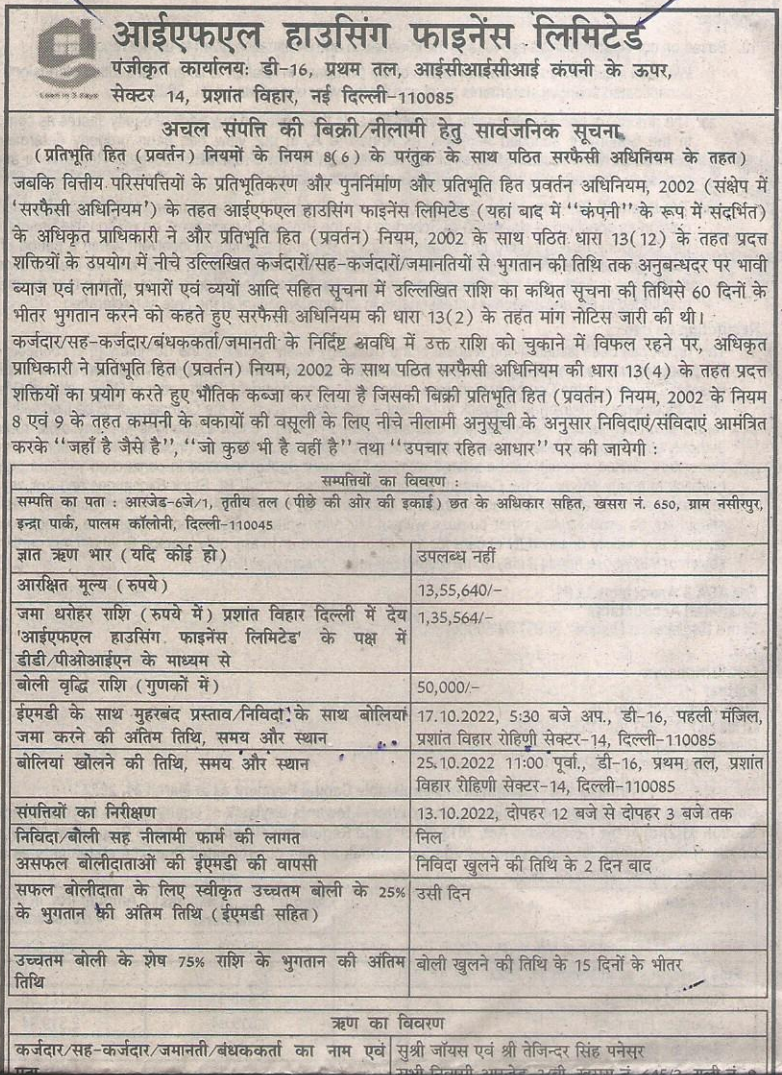 आईएफएल हाउसिंग फाइनेंस लिमिटेड
पंजीकृत कार्यालयः डी-16, प्रथम तल, आईसीआईसीआई कंपनी के ऊपर,
सेक्टर 14, प्रशांत विहार, नई दिल्ली-110085
अचल संपत्ति की बिक्री/नीलामी हेतु सार्वजनिक सूचना
(प्रतिभूति हित (प्रवर्तन) नियमों के नियम 8(6) के परंतुक के साथ पठित सरफैसी अधिनियम के तहत)
जबकि वित्तीय परिसंपत्तियों के प्रतिभूतिकरण और पुनर्निर्माण और प्रतिभूति हित प्रवर्तन अधिनियम, 2002 (संक्षेप में
'सरफैसी अधिनियम') के तहत आईएफएल हाउसिंग फाइनेंस लिमिटेड (यहां बाद में ''कंपनी'' के रूप में संदर्भित)
के अधिकृत प्राधिकारी ने और प्रतिभूति हित (प्रवर्तन) नियम, 2002 के साथ पठित धारा 13(12) के तहत प्रदत्त
शक्तियों के उपयोग में नीचे उल्लिखित कर्जदारों/सह-कर्जदारों/जमानतियों से भुगतान की तिथि तक अनुबन्धदर पर भावी
ब्याज एवं लागतों, प्रभारों एवं व्ययों आदि सहित सूचना में उल्लिखित राशि का कथित सूचना की तिथिसे 60 दिनों के
भीतर भुगतान करने को कहते हुए सरफैसी अधिनियम की धारा 13(2) के तहत मांग नोटिस जारी की थी।
कर्जदार/सह-कर्जदार/बंधककर्ता/जमानती के निर्दिष्ट अवधि में उक्त राशि को चुकाने में विफल रहने पर, अधिकृत
प्राधिकारी ने प्रतिभूति हित (प्रवर्तन) नियम, 2002 के साथ पठित सरफैसी अधिनियम की धारा 13(4) के तहत प्रदत्त
शक्तियों का प्रयोग करते हुए भौतिक कब्जा कर लिया है जिसकी बिक्री प्रतिभूति हित (प्रवर्तन) नियम, 2002 के नियम
8 एवं 9 के तहत कम्पनी के बकायों की वसूली के लिए नीचे नीलामी अनुसूची के अनुसार निविदाएं/संविदाएं आमंत्रित
करके ''जहाँ है जैसे है'', ''जो कुछ भी है वहीं है'' तथा ''उपचार रहित आधार'' पर की जायेगी :
सम्पत्तियों का विवरण :
सम्पत्ति का पता : आरजेड-6जे/1, तृतीय तल (पीछे की ओर की इकाई) छत के अधिकार सहित, खसरा नं. 650, ग्राम नसीरपुर,
इन्द्रा पार्क, पालम कॉलोनी, दिल्ली-110045
ज्ञात ऋण भार (यदि कोई हो) उपलब्ध नहीं
आरक्षित मूल्य (रुपये) 13,55,640/-
जमा धरोहर राशि (रुपये में) प्रशांत विहार दिल्ली में देय 1,35,564/-
'आईएफएल हाउसिंग फाइनेंस लिमिटेड' के पक्ष में
डीडी/पीओआईएन के माध्यम से
बोली वृद्धि राशि (गुणकों में) 50,000/-
ईएमडी के साथ मुहरबंद प्रस्ताव/निविदा के साथ बोलियां 17.10.2022, 5:30 बजे अप., डी-16, पहली मंजिल,
जमा करने की अंतिम तिथि, समय और स्थान प्रशांत विहार रोहिणी सेक्टर-14, दिल्ली-110085
बोलियां खोलने की तिथि, समय और स्थान 25.10.2022 11:00 पूर्वा., डी-16, प्रथम तल, प्रशांत
विहार रोहिणी सेक्टर-14, दिल्ली-110085
संपत्तियों का निरीक्षण 13.10.2022, दोपहर 12 बजे से दोपहर 3 बजे तक
निविदा/बोली सह नीलामी फार्म की लागत निल
असफल बोलीदाताओं की ईएमडी की वापसी निविदा खुलने की तिथि के 2 दिन बाद
सफल बोलीदाता के लिए स्वीकृत उच्चतम बोली के 25% उसी दिन
के भुगतान की अंतिम तिथि (ईएमडी सहित)
उच्चतम बोली के शेष 75% राशि के भुगतान की अंतिम बोली खुलने की तिथि के 15 दिनों के भीतर
तिथि
ऋण का विवरण
कर्जदार/सह-कर्जदार/जमानती/बंधककर्ता का नाम एवं सुश्री जॉयस एवं श्री तेजिन्दर सिंह पनेसर